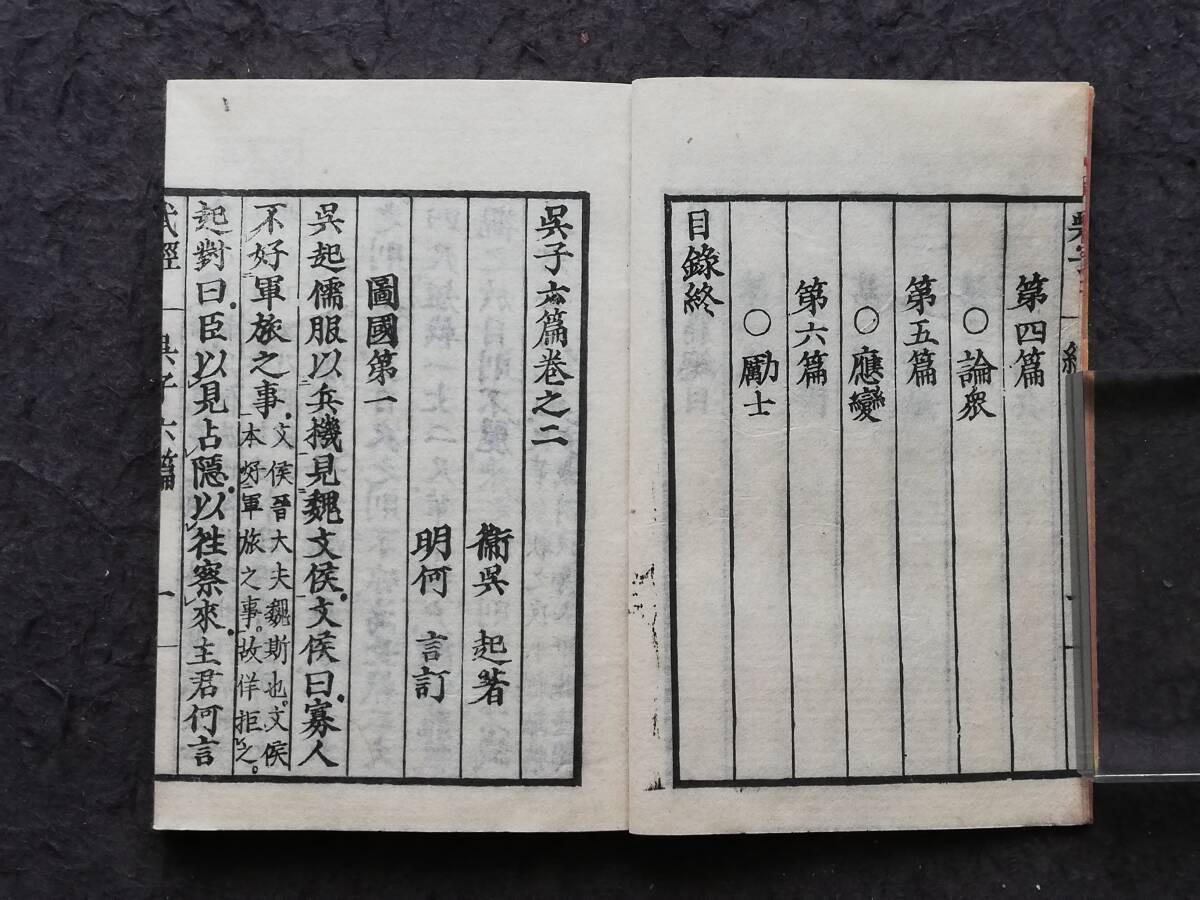 第四篇
○論衆
第五篇
○應變
第六篇
○勵士
目錄終
吳子六篇卷之二
衞吳 起著
明何 言訂
圖國第一
吳起儒服以兵機見魏文侯。文侯曰。寡人
不好軍旅之事。
文侯晉大夫魏斯也。文侯
本好軍旅之事。故佯拒之。
起對曰。臣以見占隱。以徃察來。主君何言
武經
吳子六篇
一